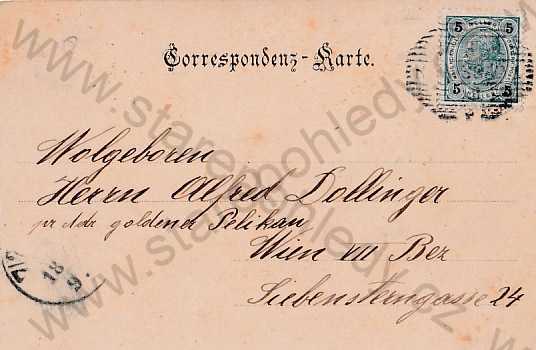 Correspondenz-Karte.
5 5
5 5
Wolgeboren
Herrn Alfred Dollinger
pr Adr goldener Pelikan
Wien VII Bez
Siebensterngasse 24
www.starepohledy.cz